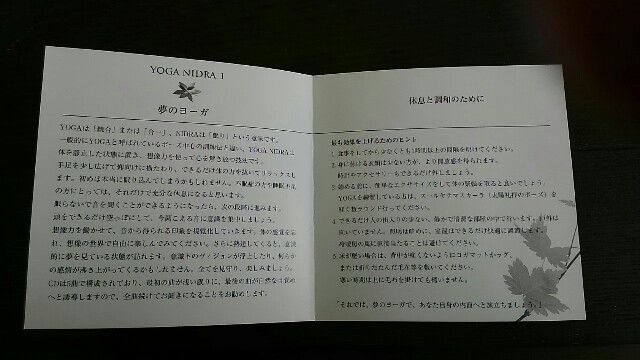 YOGA NIDRA 1
夢のヨーガ
YOGAは「統合」または「合一」、NIDRAは「眠り」という意味です。
一般的にYOGAと呼ばれているポーズ中心の訓練法と違い、YOGA NIDRAは
体を静止した状態に置き、想像力を使って心を解き放つ技法です。
手足を少し広げて仰向けに横たわり、できるだけ体の力を抜いてリラックスし
ます。初めは本当に眠り込んでしまうかもしれません。不眠症の方や睡眠不足
の方にとっては、それだけで充分な休息になると思います。
眠らないで音を聞くことができるようになったら、次の段階に進めます。
頭をできるだけ空っぽにして、今聞こえる音に意識を集中しましょう。
想像力を働かせて、音から得られる印象を視覚化していきます。体の感覚を忘
れ、想像の世界で自由に楽しんでみてください。さらに熟達してくると、意識
的に夢を見ている状態が訪れます。意識下のヴィジョンが浮上したり、何らか
の感情が沸き上がってくるかもしれません。全てを見守り、楽しみましょう。
CDは5曲で構成されており、最初の曲が浅い眠りに、最後の曲が自然な目覚め
へと誘導しますので、全曲続けてお聞きになることをお勧めします。
休息と調和のために
最も効果を上げるためのヒント
1 食事をしてから少なくとも1時間以上の間隔を開けてください。
2 身に付ける衣類は少ない方が、より開放感を得られます。
時計やアクセサリーもできるだけ外しましょう。
3 始める前に、簡単なエクササイズをして体の緊張を取ると良いでしょう。
YOGAを練習している方は、スールヤナマスカーラ（太陽礼拝のポーズ）を
軽く数ラウンド行ってください。
4 できるだけ人の出入りの少ない、静かで清潔な部屋の中で行います。
吹いていません。照明は暗めに、室温はできるだけ快適に調節します。
冷暖房の風に直接当たることは避けてください。
5 床が硬い場合は、背中が痛くないようにヨガマットかラグ、
または折りたたんだ毛布等を敷いてください。
寒い時期は上に毛布を掛けても構いません。
「それでは、夢のヨーガで、あなた自身の内面へと旅立ちましょう。」